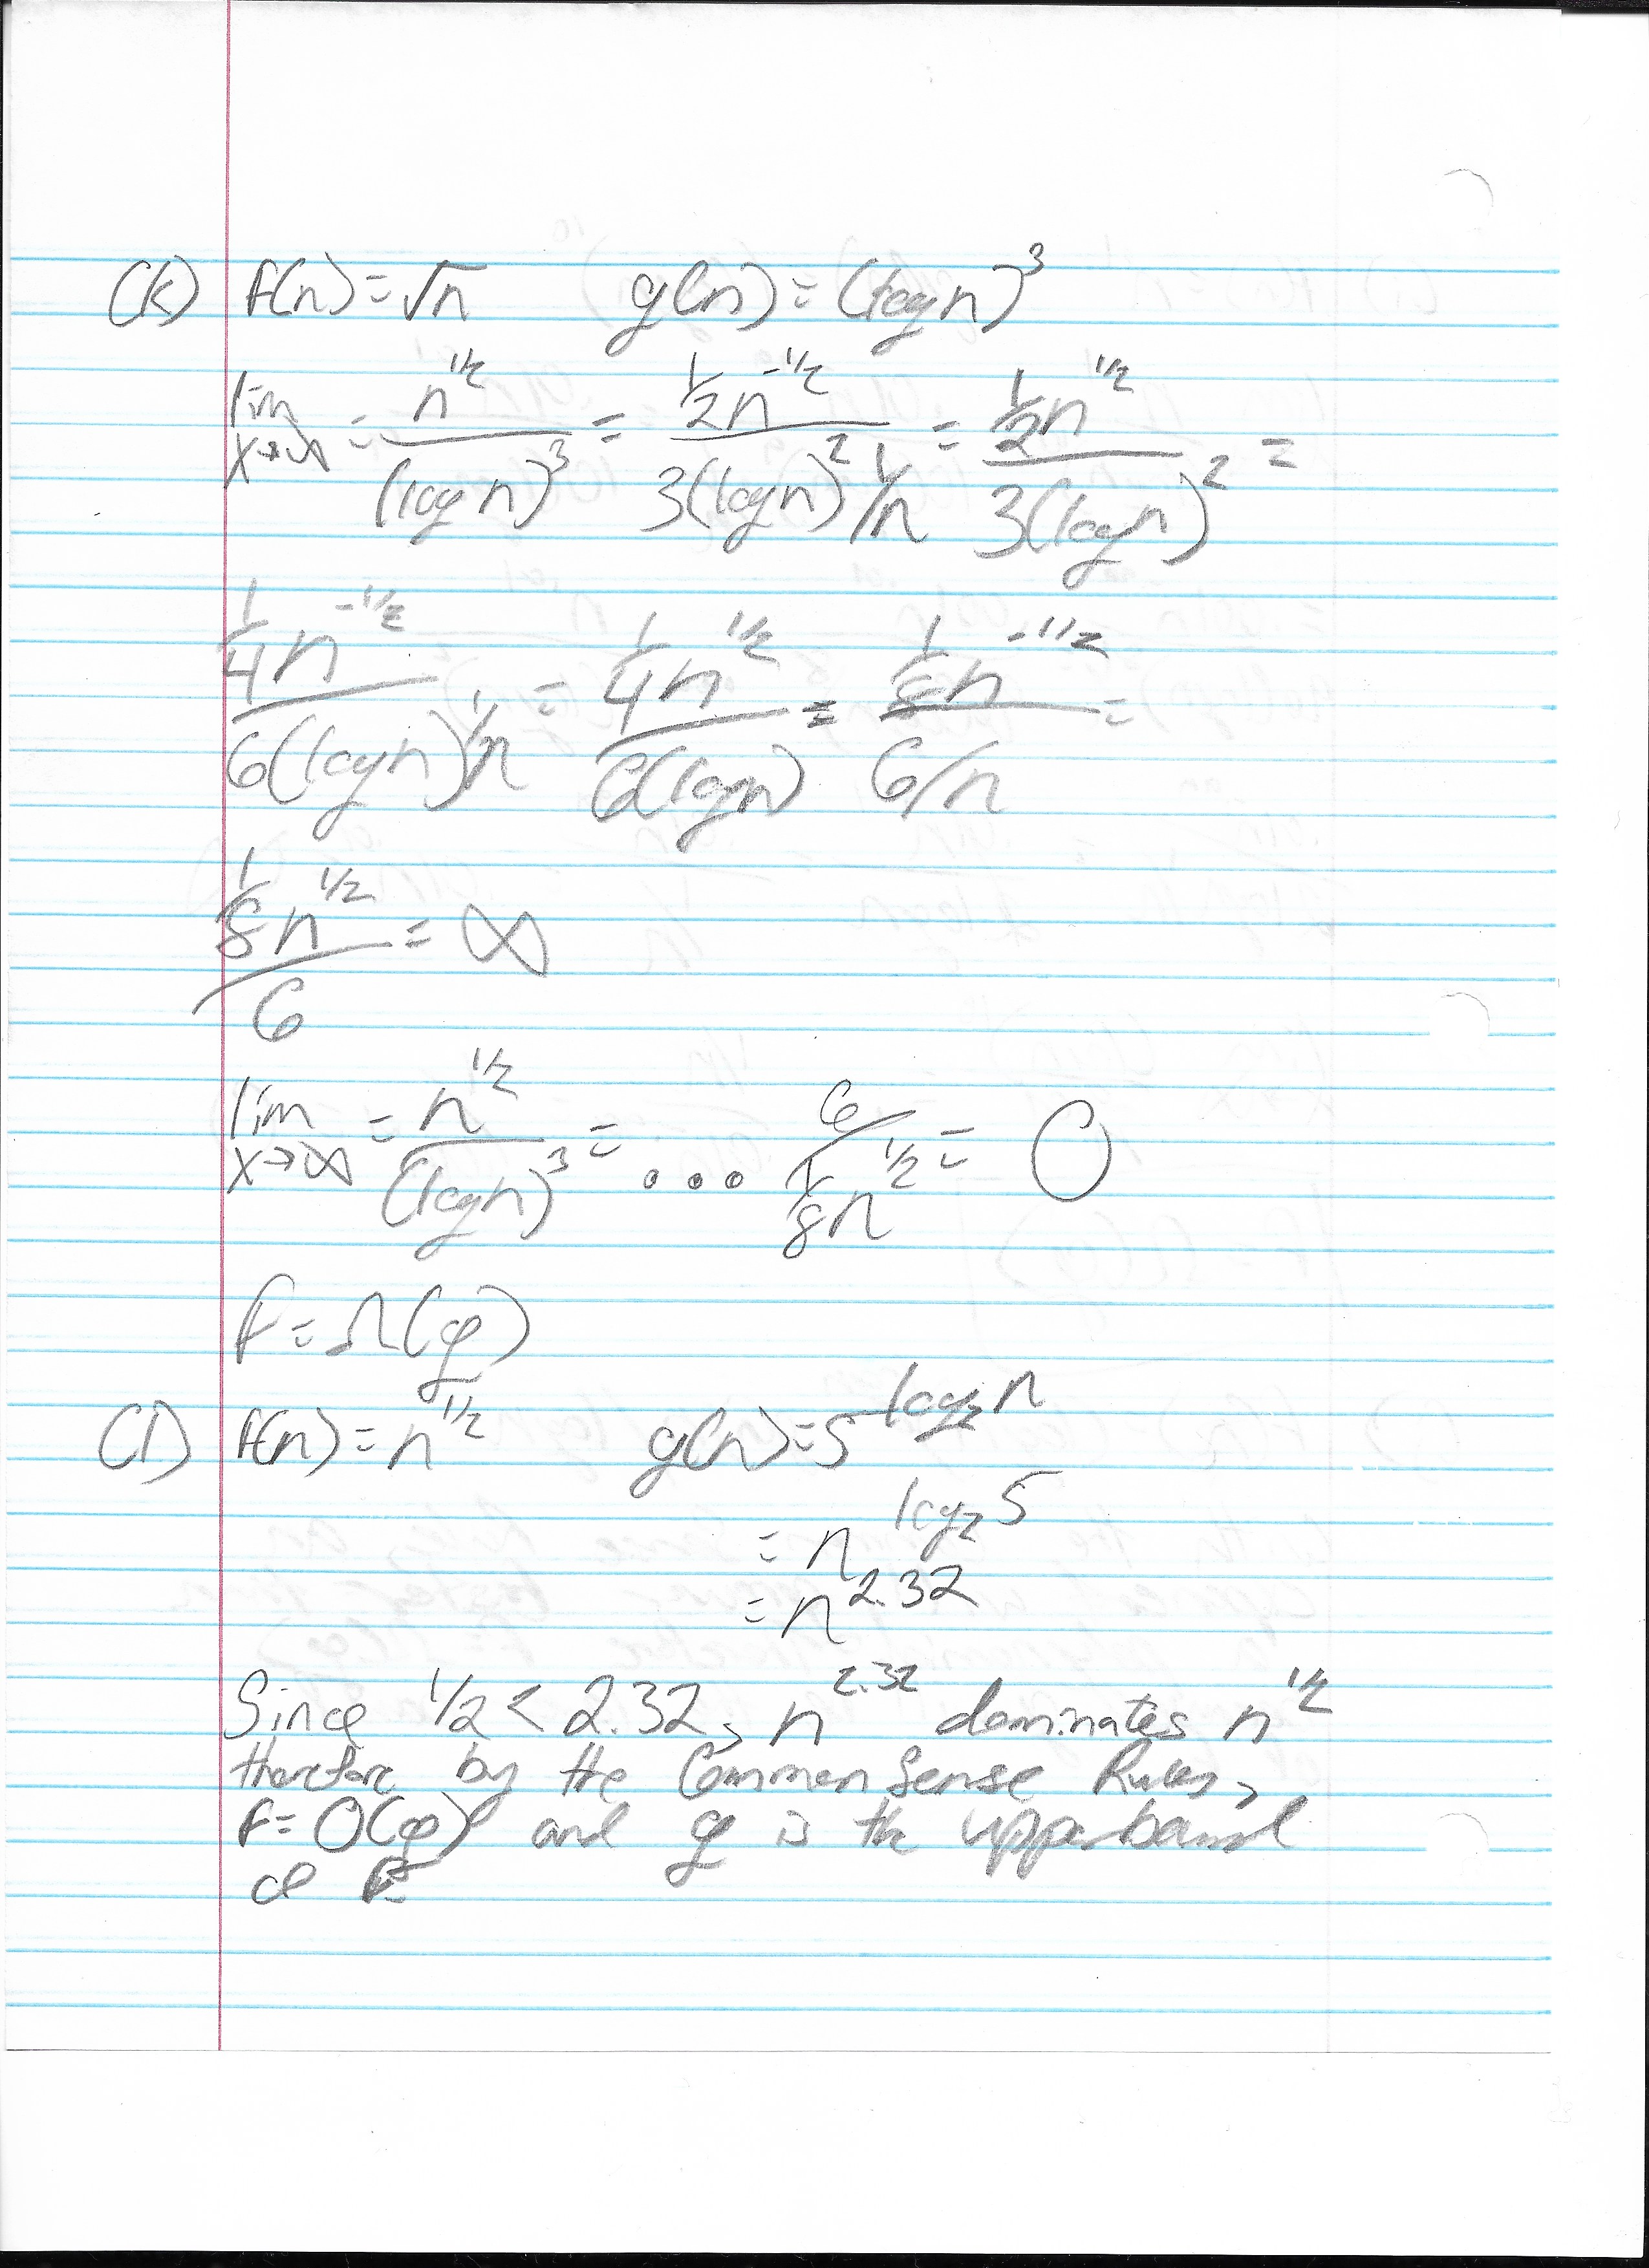 (k) f(n) = √n g(n) = (log n)^3
lim x→∞ = n^1/2 / (log n)^3 = 1/2 n^-1/2 / 3(log n)^2 1/n = 1/2 n^1/2 / 3(log n)^2 =
1/4 n^-1/2 / 6(log n) 1/n = 1/4 n^1/2 / 6(log n) = 1/8 n^-1/2 / 6/n =
1/8 n^1/2 / 6 = ∞
lim x→∞ = n^1/2 / (log n)^3 = ... 6 / 1/8 n^1/2 = 0
f = Ω(g)
(l) f(n) = n^1/2 g(n) = 5^log₂ n
= n^log₂ 5
= n^2.32
Since 1/2 < 2.32, n^2.32 dominates n^1/2
therefore by the Common Sense Rules,
f = O(g) and g is the upperbound
of f